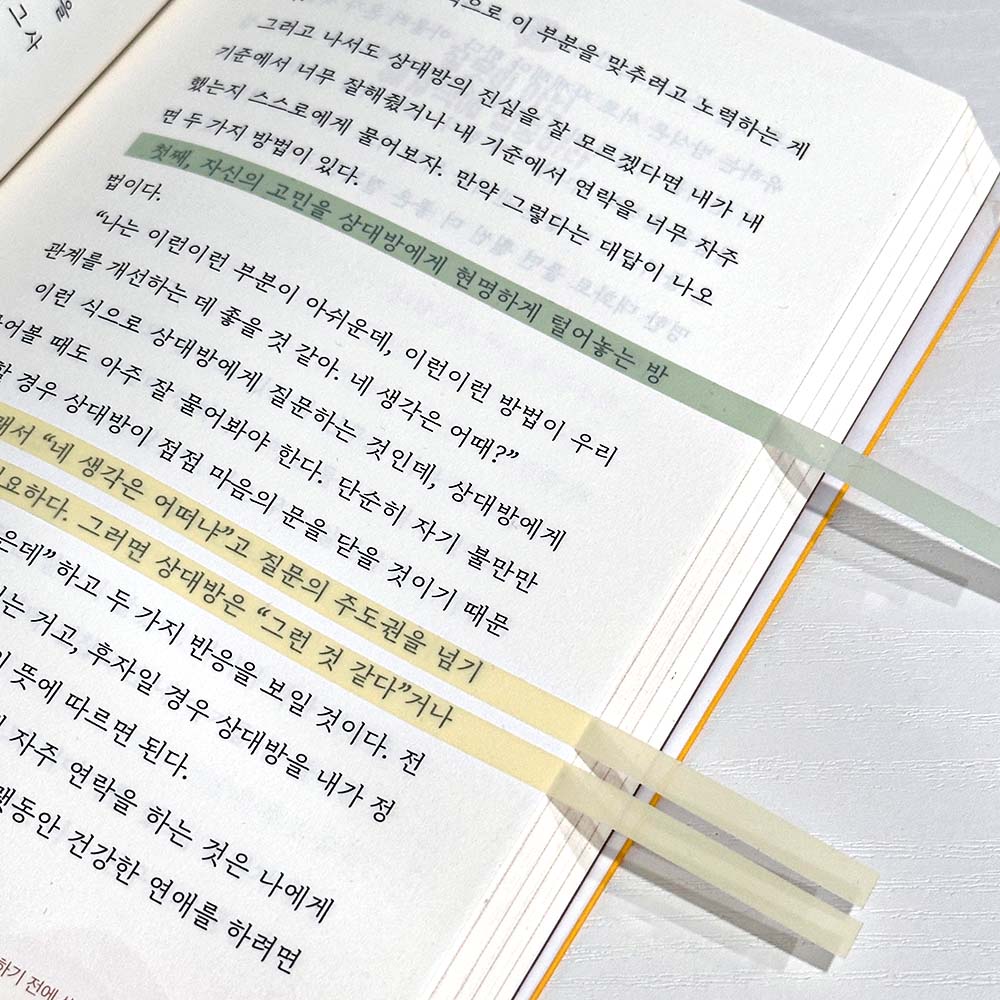 그 사
으로 이 부분을 맞추려고 노력하는 게
그러고 나서도 상대방의 진심을 잘 모르겠다면 내가 내
기준에서 너무 잘해줬거나 내 기준에서 연락을 너무 자주
했는지 스스로에게 물어보자. 만약 그렇다는 대답이 나오
면 두 가지 방법이 있다.
첫째, 자신의 고민을 상대방에게 현명하게 털어놓는 방
법이다.
“나는 이런이런 부분이 아쉬운데, 이런이런 방법이 우리
관계를 개선하는 데 좋을 것 같아. 네 생각은 어때?”
이런 식으로 상대방에게 질문하는 것인데, 상대방에게
어볼 때도 아주 잘 물어봐야 한다. 단순히 자기 불만만
할 경우 상대방이 점점 마음의 문을 닫을 것이기 때문
해서 “네 생각은 어떠냐”고 질문의 주도권을 넘기
요하다. 그러면 상대방은 “그런 것 같다”거나
은데” 하고 두 가지 반응을 보일 것이다. 전
는 거고, 후자일 경우 상대방을 내가 정
뜻에 따르면 된다.
자주 연락을 하는 것은 나에게
동안 건강한 연애를 하려면
하기 전에